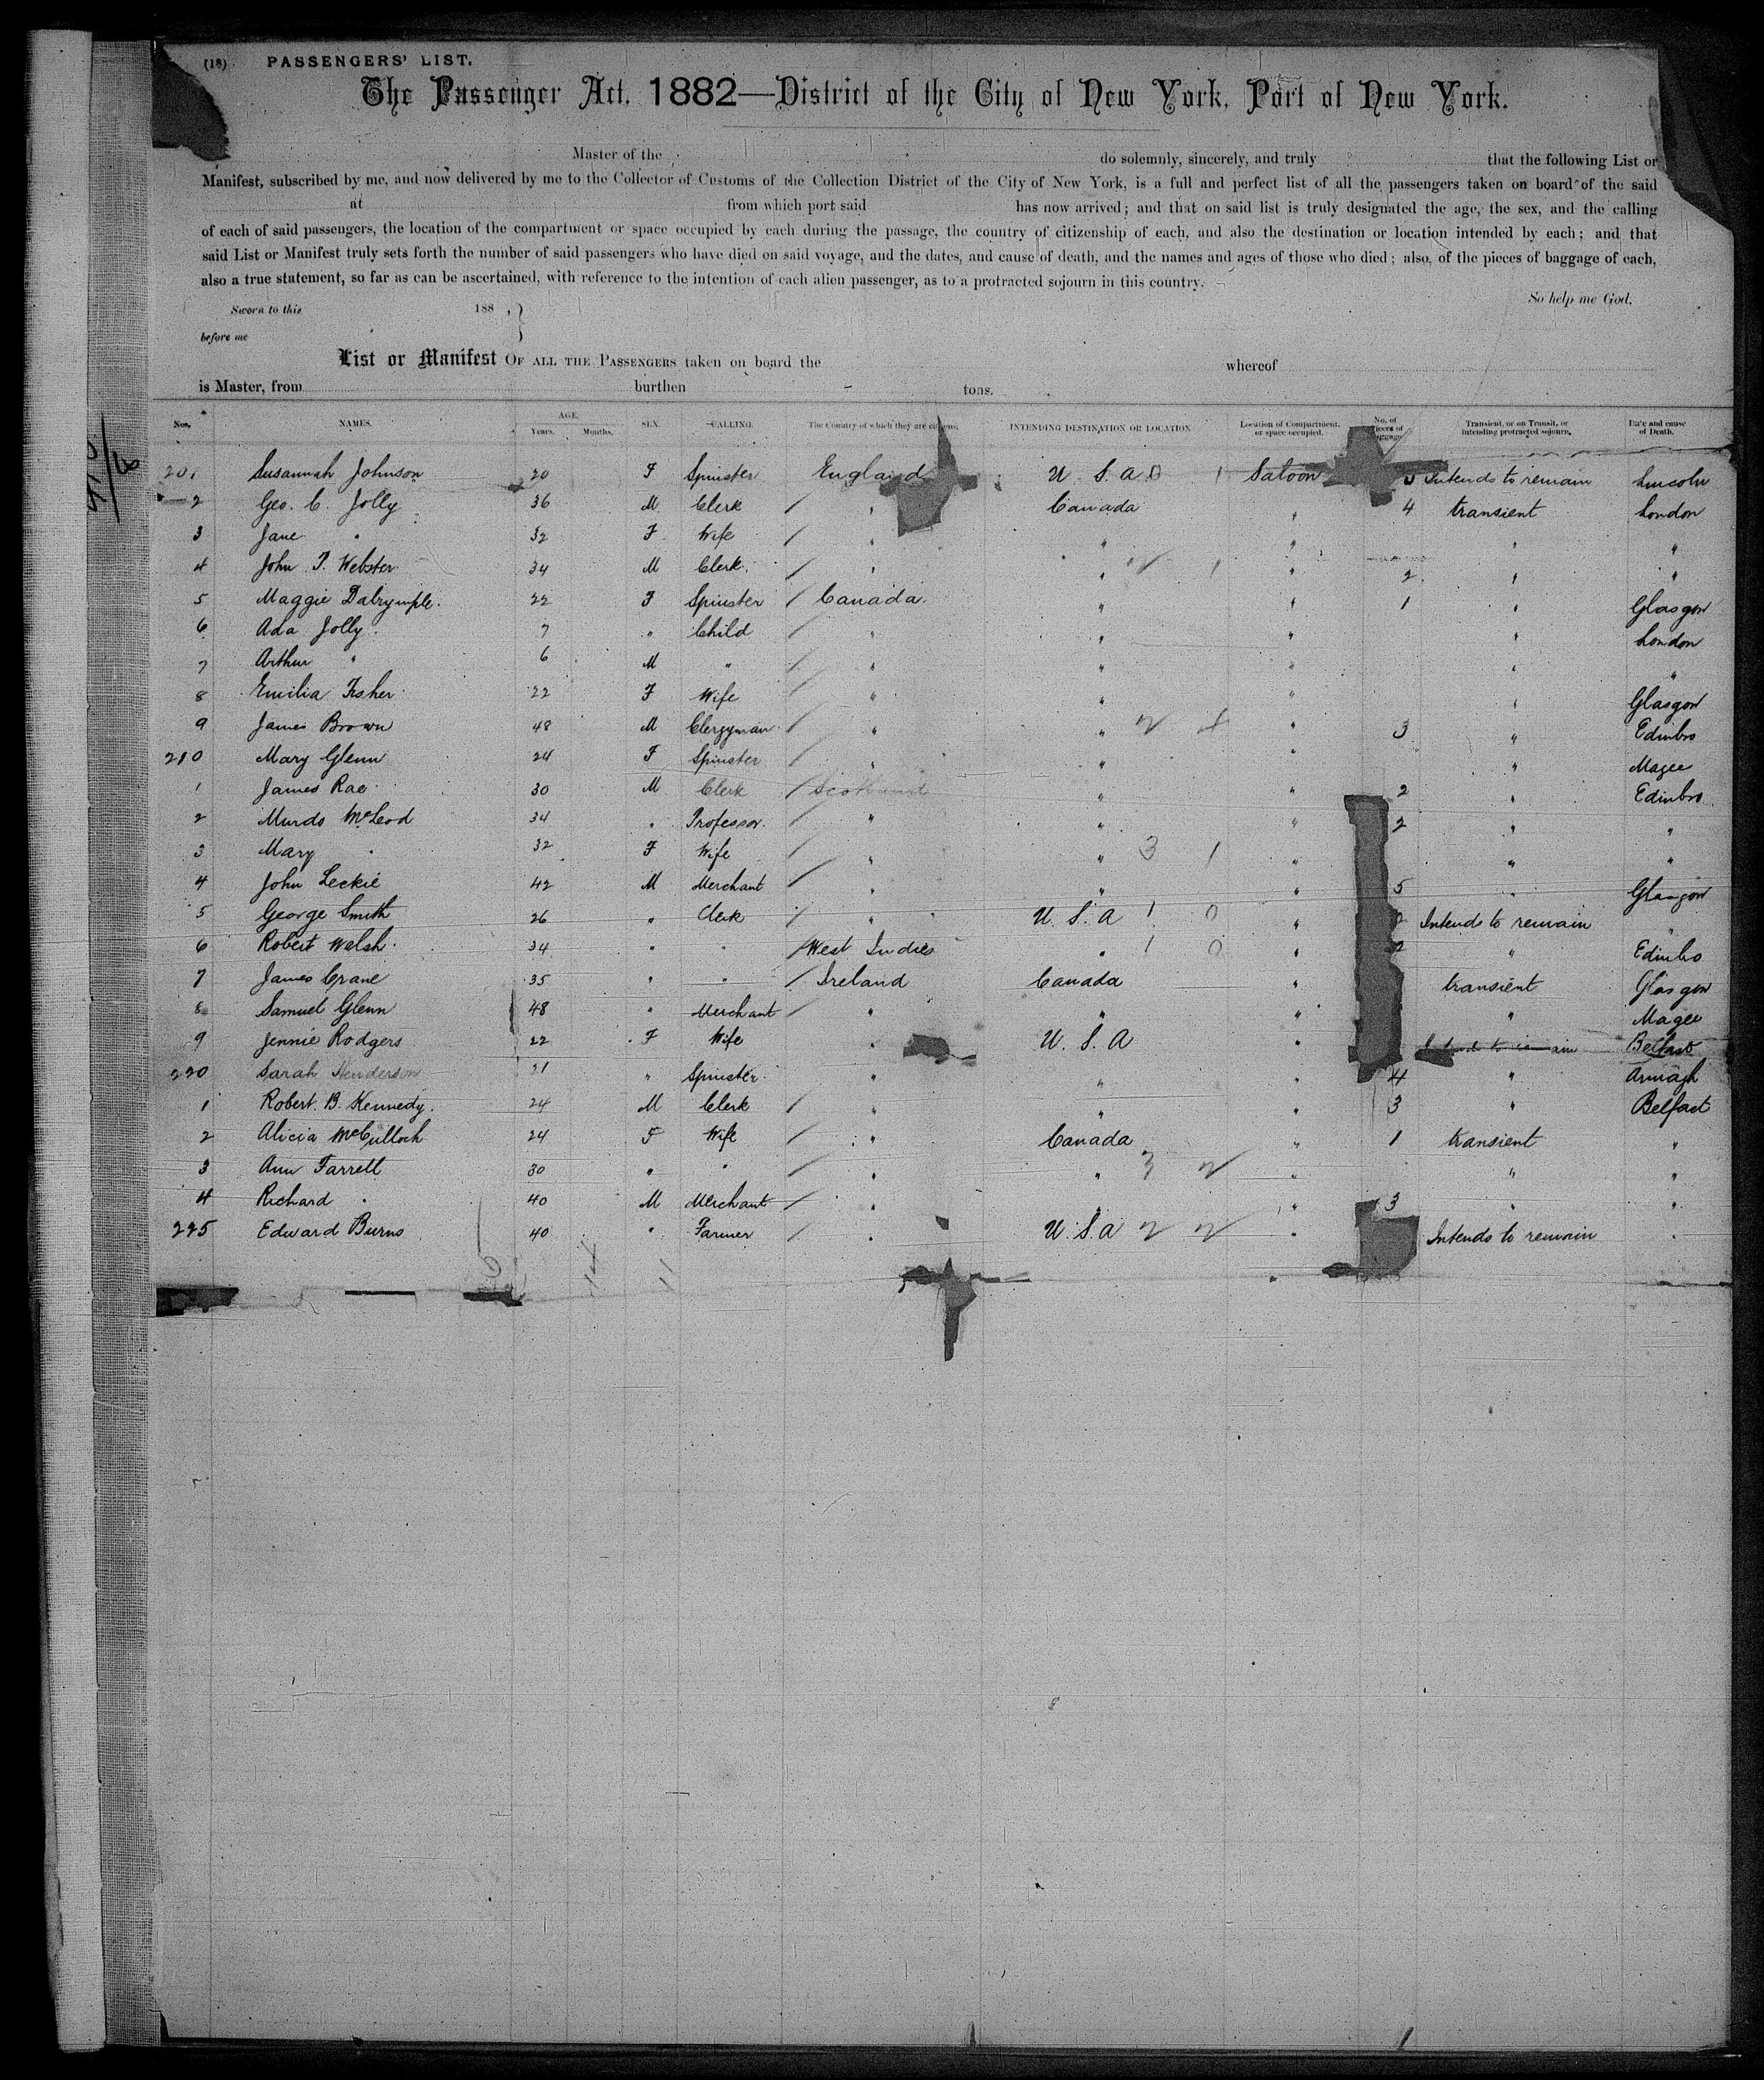 (18) PASSENGERS' LIST.
The Passenger Act, 1882—District of the City of New York, Port of New York.
Master of the do solemnly, sincerely, and truly that the following List or
Manifest, subscribed by me, and now delivered by me to the Collector of Customs of the Collection District of the City of New York, is a full and perfect list of all the passengers taken on board of the said
at from which port said has now arrived; and that on said list is truly designated the age, the sex, and the calling
of each of said passengers, the location of the compartment or space occupied by each during the passage, the country of citizenship of each, and also the destination or location intended by each; and that
said List or Manifest truly sets forth the number of said passengers who have died on said voyage, and the dates, and cause of death, and the names and ages of those who died; also, of the pieces of baggage of each,
also a true statement, so far as can be ascertained, with reference to the intention of each alien passenger, as to a protracted sojourn in this country.
So help me God.
Sworn to this 188 , }
before me }
List or Manifest OF ALL THE PASSENGERS taken on board the whereof
is Master, from burthen tons.
Nos. NAMES. AGE. Years. Months. SEX. CALLING. The Country of which they are citizens. INTENDING DESTINATION OR LOCATION Location of Compartment, or space occupied. No. of pieces of baggage Transient, or on Transit, or intending protracted sojourn. Date and cause of Death.
201 Susannah Johnson 20 F Spinster England U. S. A 0 1 Saloon Intends to remain Lincoln
2 Geo. C. Jolly 36 M Clerk / " Canada " 4 transient London
3 Jane " 32 F Wife / " " " " "
4 John T. Webster 34 M Clerk / " " 2 1 " 2 " "
5 Maggie Dalrymple. 22 F Spinster / Canada " " 1 " Glasgow
6 Ada Jolly 7 " Child / " " " " London
7 Arthur " 6 M " / " " " " "
8 Emilia Fisher 22 F Wife / " " " " Glasgow
9 James Brown 48 M Clergyman / " " 2 4 " 3 " Edinbro
210 Mary Glenn 24 F Spinster / " " " " Magee
1 James Rae 30 M Clerk / Scotland " " 2 " Edinbro
2 Murdo McLeod 34 " Professor. / " " " 2 " "
3 Mary " 32 F Wife / " " 3 1 " " "
4 John Leckie 42 M Merchant / " " " 5 " Glasgow
5 George Smith 26 " Clerk / " U. S. A 1 0 " 2 Intends to remain "
6 Robert Welsh 34 " " / West Indies " 1 0 " 2 " Edinbro
7 James Crane 35 " " / Ireland Canada " transient Glasgow
8 Samuel Glenn 48 " Merchant / " " " " Magee
9 Jennie Rodgers 22 F Wife " U. S. A " Belfast
220 Sarah Henderson 21 " Spinster " " " 4 " Armagh
1 Robert. B. Kennedy. 24 M Clerk / " " " 3 " Belfast
2 Alicia McCulloch 24 F Wife / " Canada " 1 transient "
3 Ann Farrell 30 " " / " " 3 2 " " "
4 Richard " 40 M Merchant / " " " 3 " "
225 Edward Burns 40 " Farmer / " U. S. A 2 2 " Intends to remain "